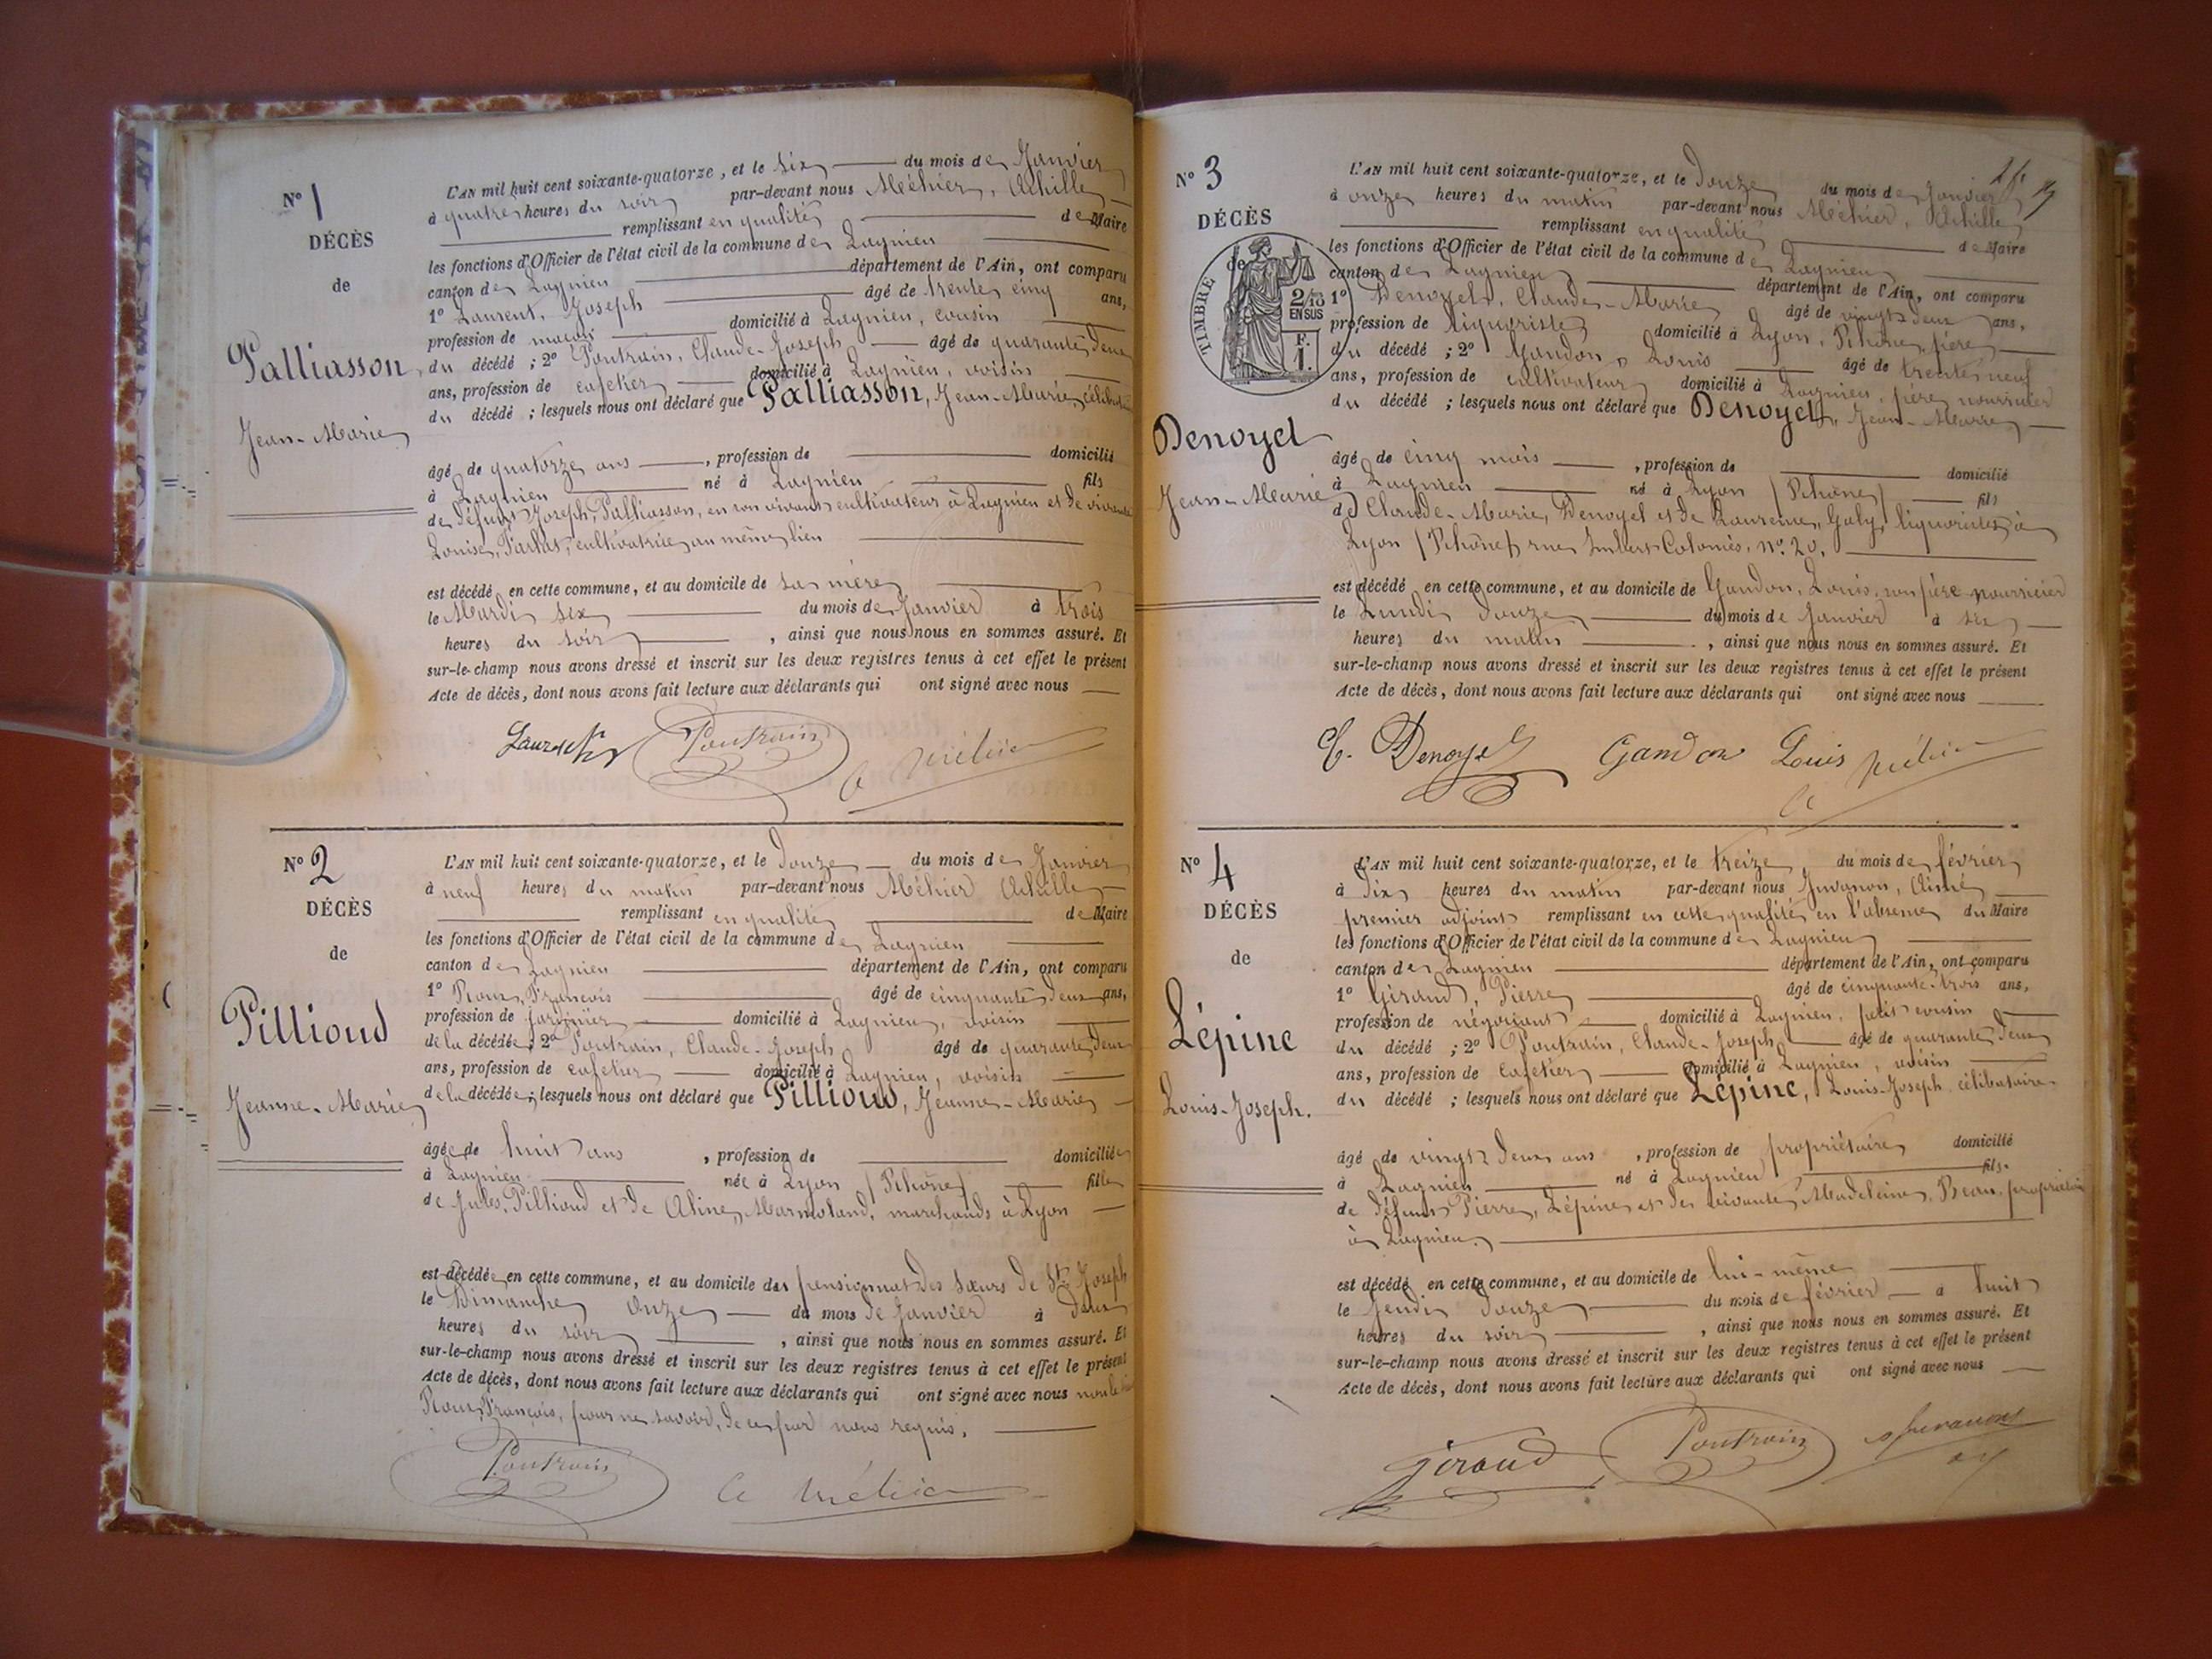 N° 1
DÉCÈS
de
Palliasson
Jean-Marie
L'AN mil huit cent soixante-quatorze, et le six du mois de Janvier
à quatre heures du soir par-devant nous Méhier, Achille
remplissant en qualité de Maire
les fonctions d'Officier de l'état civil de la commune de Lagnieu
canton de Lagnieu département de l'Ain, ont comparu
1° Laurent, Joseph âgé de trente cinq ans,
profession de maçon domicilié à Lagnieu, cousin
du décédé ; 2° Poutrain, Claude-Joseph âgé de quarante deux
ans, profession de cafetier domicilié à Lagnieu, voisin
du décédé ; lesquels nous ont déclaré que Palliasson, Jean-Marie, célibataire
âgé de quatorze ans, profession de domicilié
à Lagnieu né à Lagnieu fils
de défunt Joseph, Palliasson, en son vivant cultivateur à Lagnieu et de vivante
Louise, cultivatrice au même lieu
est décédé en cette commune, et au domicile de sa mère
le Mardi six du mois de Janvier à trois
heures du soir, ainsi que nous nous en sommes assuré. Et
sur-le-champ nous avons dressé et inscrit sur les deux registres tenus à cet effet le présent
Acte de décès, dont nous avons fait lecture aux déclarants qui ont signé avec nous
Poutrain
A Méhier
N° 2
DÉCÈS
de
Pillioud
Jeanne-Marie
L'AN mil huit cent soixante-quatorze, et le douze du mois de Janvier
à neuf heures du matin par-devant nous Méhier Achille
remplissant en qualité de Maire
les fonctions d'Officier de l'état civil de la commune de Lagnieu
canton de Lagnieu département de l'Ain, ont comparu
1° Roux, François âgé de cinquante deux ans,
profession de jardinier domicilié à Lagnieu, voisin
de la décédée ; 2° Poutrain, Claude-Joseph âgé de quarante deux
ans, profession de cafetier domicilié à Lagnieu, voisin
de la décédée ; lesquels nous ont déclaré que Pillioud, Jeanne-Marie
âgée de huit ans, profession de domiciliée
à Lagnieu née à Lyon (Rhône) fille
de Jules, Pillioud et de Aline, Marmoland, marchands à Lyon
est décédée en cette commune, et au domicile des pensionnat des Sœurs de St Joseph
le Dimanche onze du mois de Janvier à deux
heures du soir, ainsi que nous nous en sommes assuré. Et
sur-le-champ nous avons dressé et inscrit sur les deux registres tenus à cet effet le présent
Acte de décès, dont nous avons fait lecture aux déclarants qui ont signé avec nous non le
Roux, François, pour ne savoir, de ce par nous requis.
Poutrain
A Méhier
N° 3
DÉCÈS
de
TIMBRE
2/10
EN SUS
F.
1.
Denoyel
Jean-Marie
L'AN mil huit cent soixante-quatorze, et le douze du mois de Janvier
à onze heures du matin par-devant nous Méhier, Achille
remplissant en qualité de Maire
les fonctions d'Officier de l'état civil de la commune de Lagnieu
canton de Lagnieu département de l'Ain, ont comparu
1° Denoyel, Claude-Marie âgé de vingt deux ans,
profession de liquoriste domicilié à Lyon, Rhône, père
du décédé ; 2° Gandon, Louis âgé de trente neuf
ans, profession de cultivateur domicilié à Lagnieu, père nourricier
du décédé ; lesquels nous ont déclaré que Denoyel, Jean-Marie
âgé de cinq mois, profession de domicilié
à Lagnieu né à Lyon (Rhône) fils
de Claude-Marie, Denoyel et de Laurence, Galy, liquoristes à
Lyon (Rhône) rue Imbert Colomès, n° 20.
est décédé en cette commune, et au domicile de Gandon, Louis, son père nourricier
le Lundi douze du mois de Janvier à six
heures du matin, ainsi que nous nous en sommes assuré. Et
sur-le-champ nous avons dressé et inscrit sur les deux registres tenus à cet effet le présent
Acte de décès, dont nous avons fait lecture aux déclarants qui ont signé avec nous
C. Denoyel Gandon Louis Méhier
N° 4
DÉCÈS
de
Lépine
Louis-Joseph.
L'AN mil huit cent soixante-quatorze, et le treize du mois de février
à dix heures du matin par-devant nous Juvanon, Aimé
premier adjoint remplissant en cette qualité en l'absence du Maire
les fonctions d'Officier de l'état civil de la commune de Lagnieu
canton de Lagnieu département de l'Ain, ont comparu
1° Giraud, Pierre âgé de cinquante-trois ans,
profession de négociant domicilié à Lagnieu, petit cousin
du décédé ; 2° Poutrain, Claude-Joseph âgé de quarante deux
ans, profession de Cafetier domicilié à Lagnieu, voisin
du décédé ; lesquels nous ont déclaré que Lépine, Louis-Joseph célibataire
âgé de vingt deux ans, profession de propriétaire domicilié
à Lagnieu né à Lagnieu fils
de défunt Pierre, Lépine et de vivante Madeleine, Beau, propriétaire
à Lagnieu.
est décédé en cette commune, et au domicile de lui-même
le Jeudi douze du mois de février à huit
heures du soir, ainsi que nous nous en sommes assuré. Et
sur-le-champ nous avons dressé et inscrit sur les deux registres tenus à cet effet le présent
Acte de décès, dont nous avons fait lecture aux déclarants qui ont signé avec nous
Giraud Poutrain Juvanon